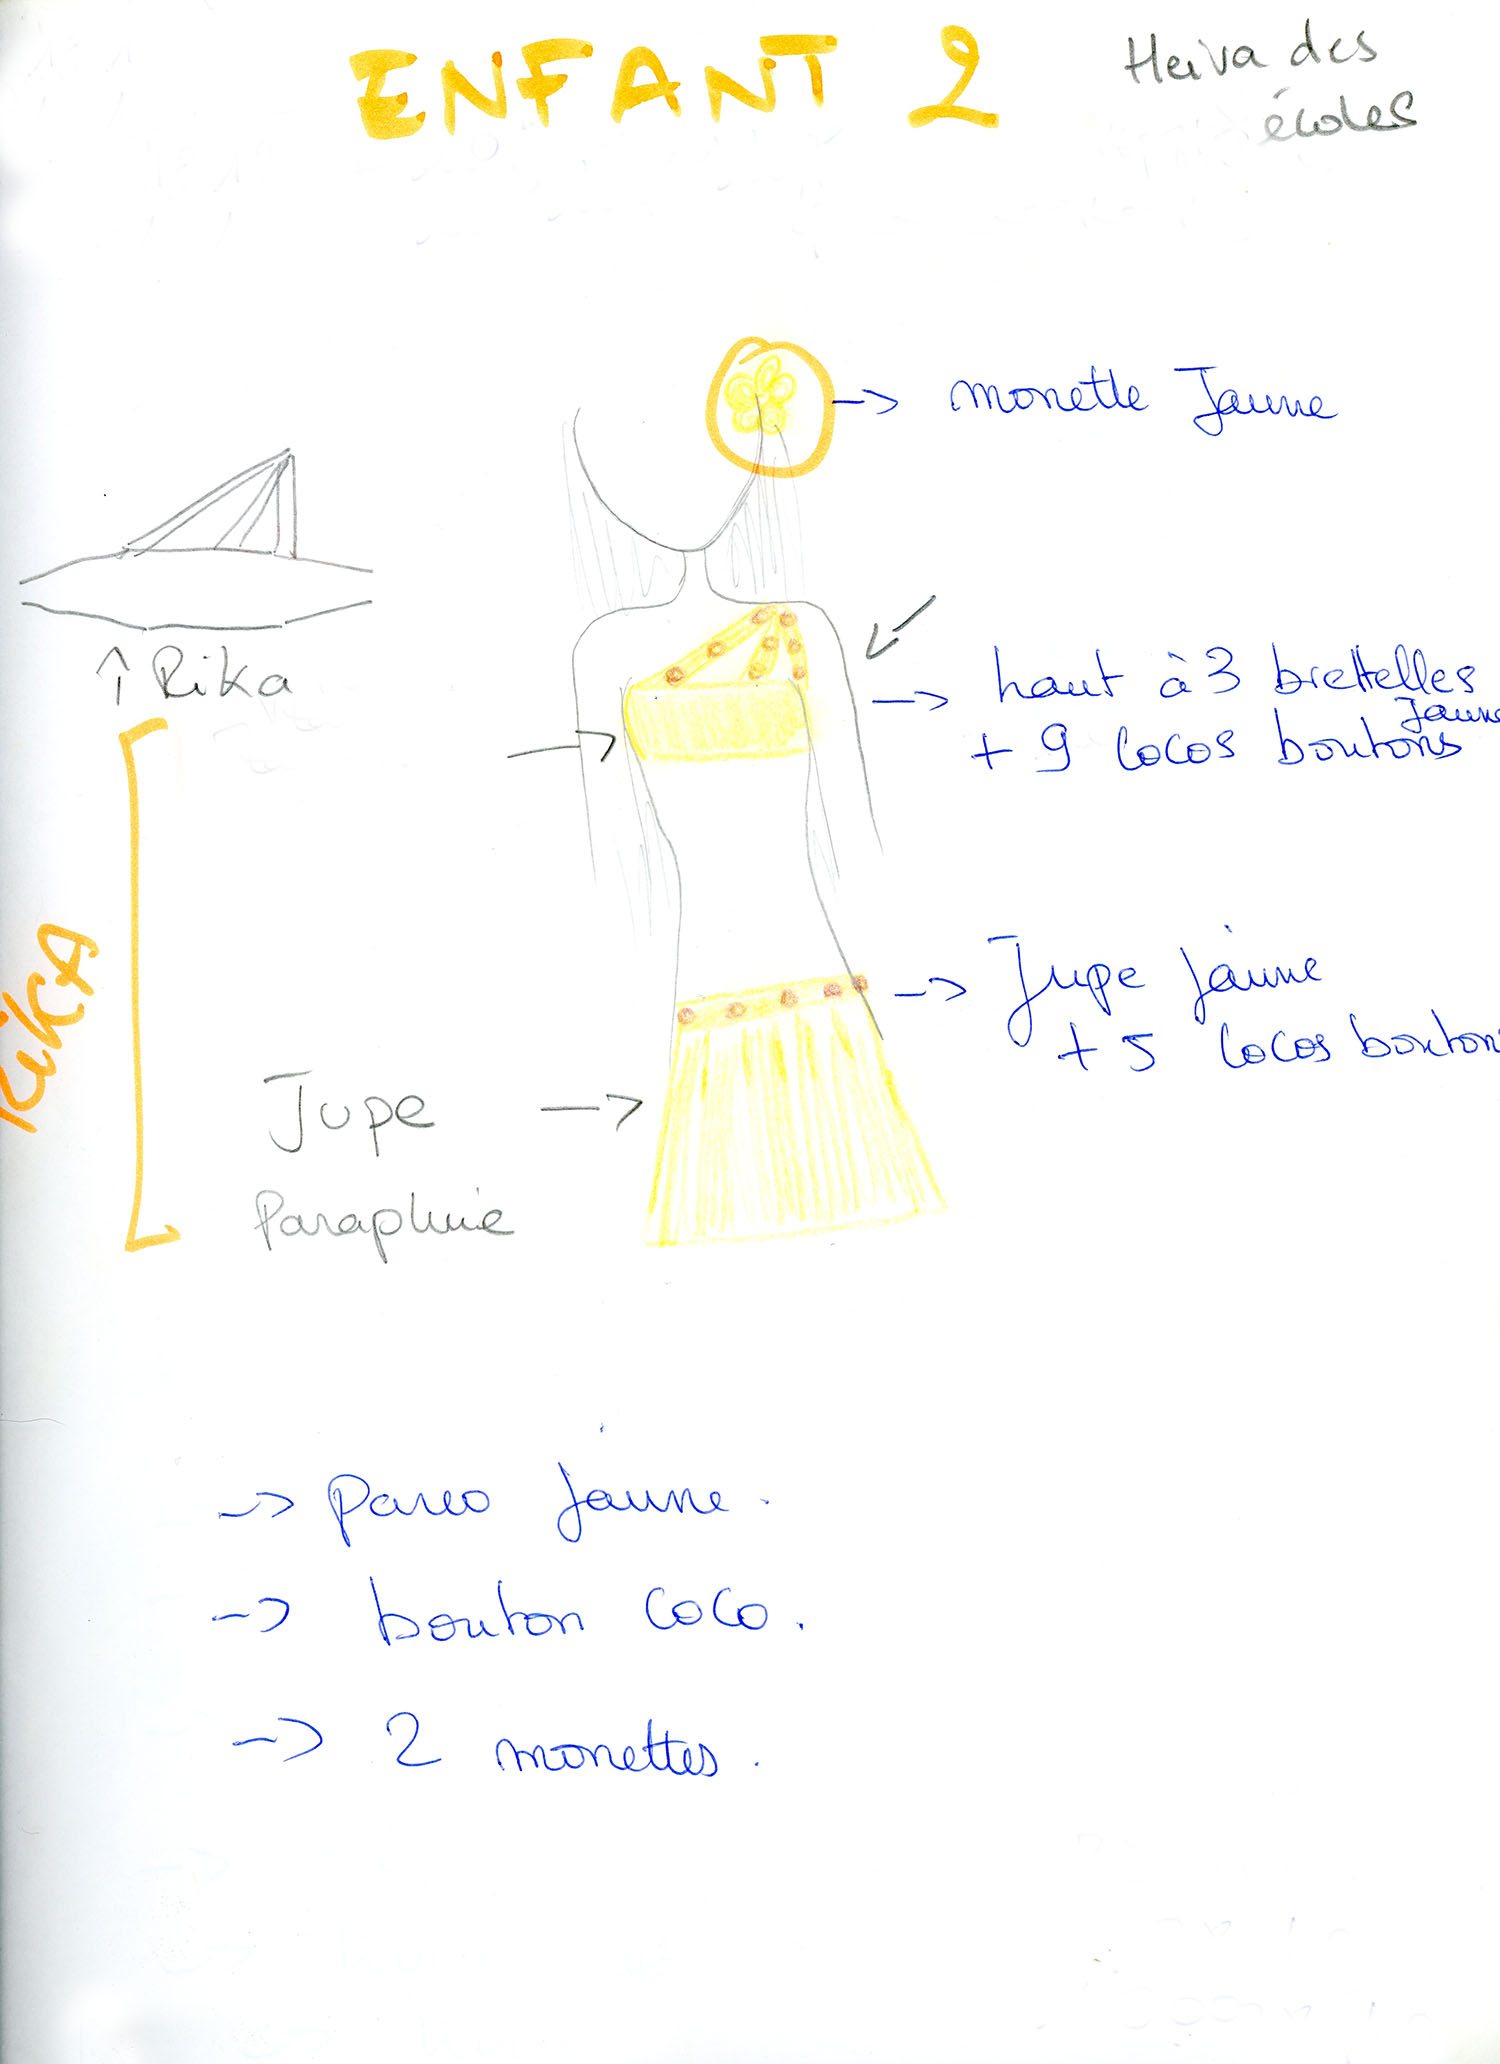 ENFANT 2
Heiva des
écoles
monette Jaune
↑ Rika
haut à 3 brettelles
Jaune
+ 9 cocos boutons
RiKA
Jupe jaune
+ 5 cocos bouton
Jupe
Parapluie
-> Pareo jaune.
-> bouton coco.
-> 2 monettes.